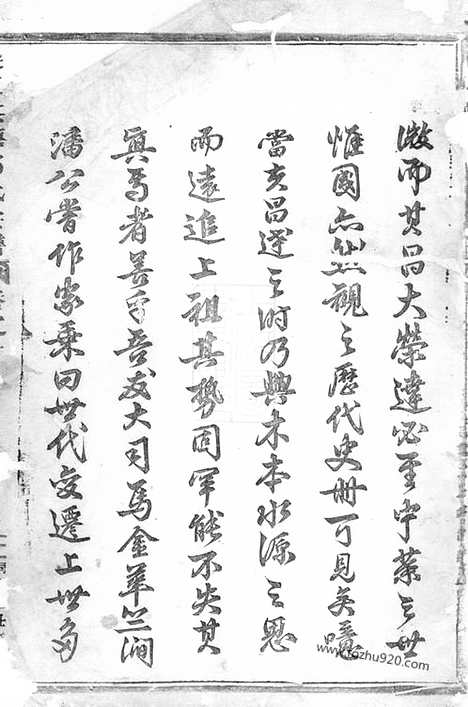 微而其昌大榮達必至宁葉之世
惟國亦然視之歷代史冊可見矣噫
當文昌運之时乃興木本水源之思
而遠追上祖其勢固罕能不失其
真焉者善乎吾友大司馬金華竺澗
潘公嘗作家乘曰世代变遷上世多
www.jiazhu920.com